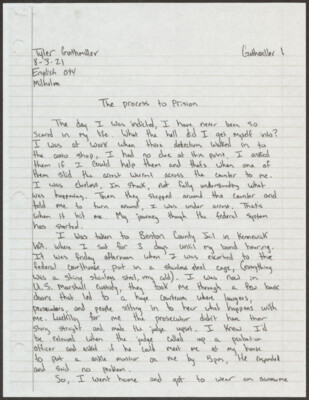 Tyler Guthmiller Gutmiller 1
8-3-21
English 094
Milholm
The process to Prison
The day I was indicted, I have never been so
scared in my life. What the hell did I get myself into?
I was at work when three detectives walked in to
the shop, I had no clue at this point, I asked
them if I could help them and thats when one of
them slid the arrest warrent across the counter to me.
I was clueless, In shock, not fully understanding what
was happening. Then they stepped around the counter and
told me to turn around, I was under arrest. Thats
when it hit me. My journey though the federal system
has started.
I was taken to Benton County Jail in Kennewick
WA. where I sat for 3 days until my bond hearing.
It was friday afternoon when I was escorted to the
federal courthouse, put in a stainless steel cage, (everything
was a shiny stainless steel, my cold). I was now in
U.S. Marshall custody, they took me through a few back
doors that led to a huge courtroom where lawyers,
prosecuters, and people sitting in to hear what happens with
me. Luckily for me the prosecutor didn't have their
story straight and made the judge upset. I knew I'd
be released when the judge called up a probation
officer and asked if he could meet me at my house
to put a ankle monitor on me by 5pm, He responded
and said no problem.
So, I went home and got to wear an awesome